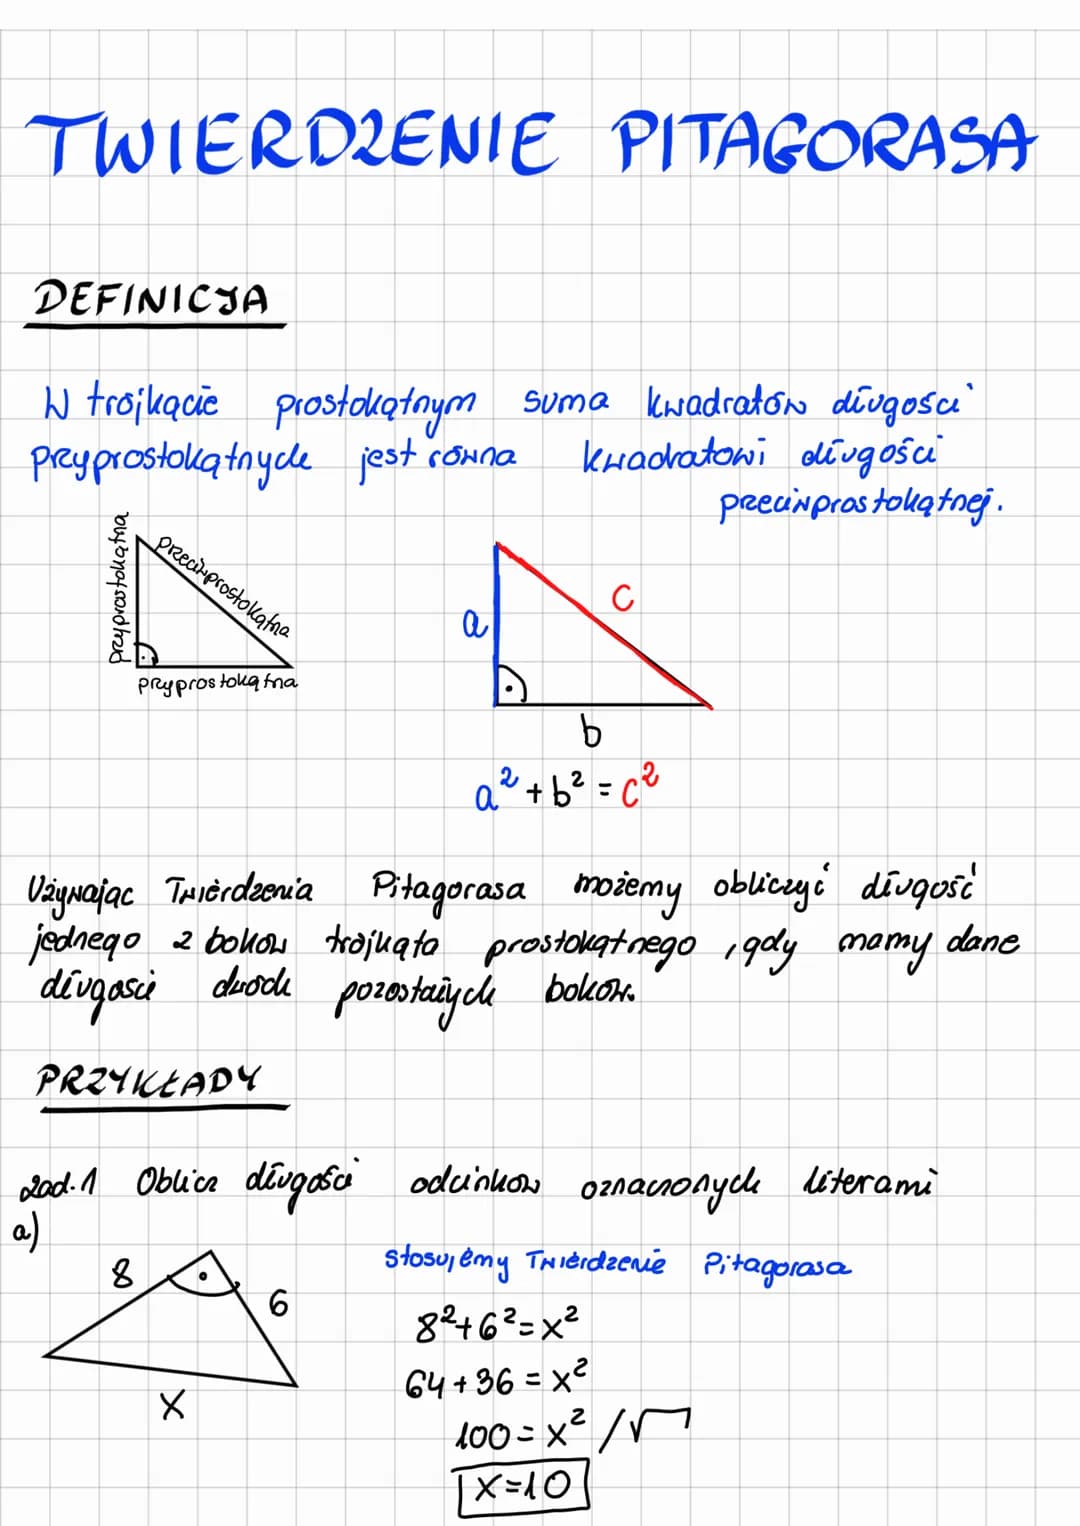 TWIERDZENIE PITAGORASA
DEFINICJA
W trójkącie prostokątnym suma kwadratów długości
przyprostokątnych jest równa kwadratowi długości
przeciwprostokątnej.
przyprostokątna
przeciwprostokątna
przyprostokątna
a
c
b
a² + b² = c²
Używając Twierdzenia Pitagorasa możemy obliczyć długość
jednego z boków trójkąta prostokątnego, gdy mamy dane
długości dwóch pozostałych boków.
PRZYKŁADY
zad. 1 Oblicz długości odcinków oznaczonych literami
a)
8
6
x
Stosujemy Twierdzenie Pitagorasa
8² + 6² = x²
64 + 36 = x²
100 = x² /√
x = 10